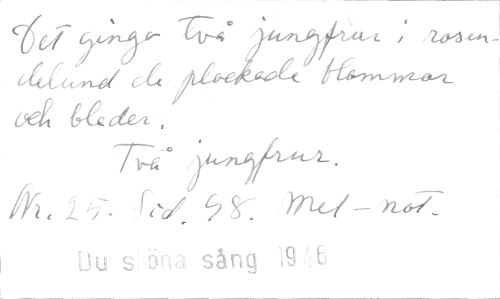 Det ginge två jungfrur i rosen-
delund de plockade blommor
och blader.
Två jungfrur.
Nr. 25. Sid. 98. Mel-not.
Du sköna sång 1946